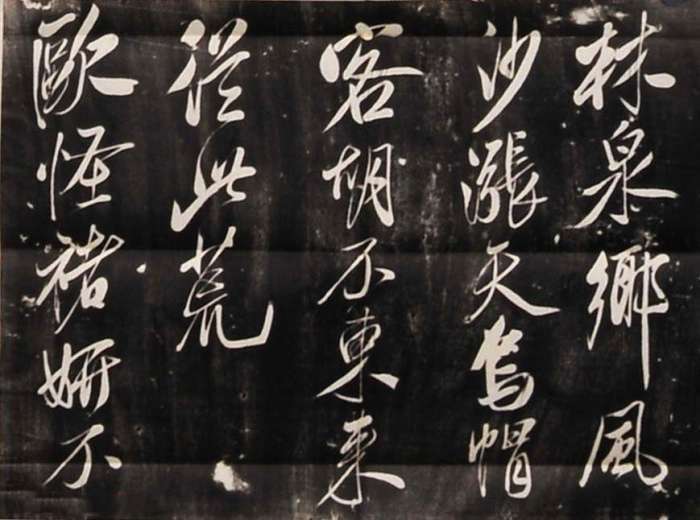 林泉鄉風
沙漲天烏帽
客胡不東来
從此荒
歐怪褚妍不